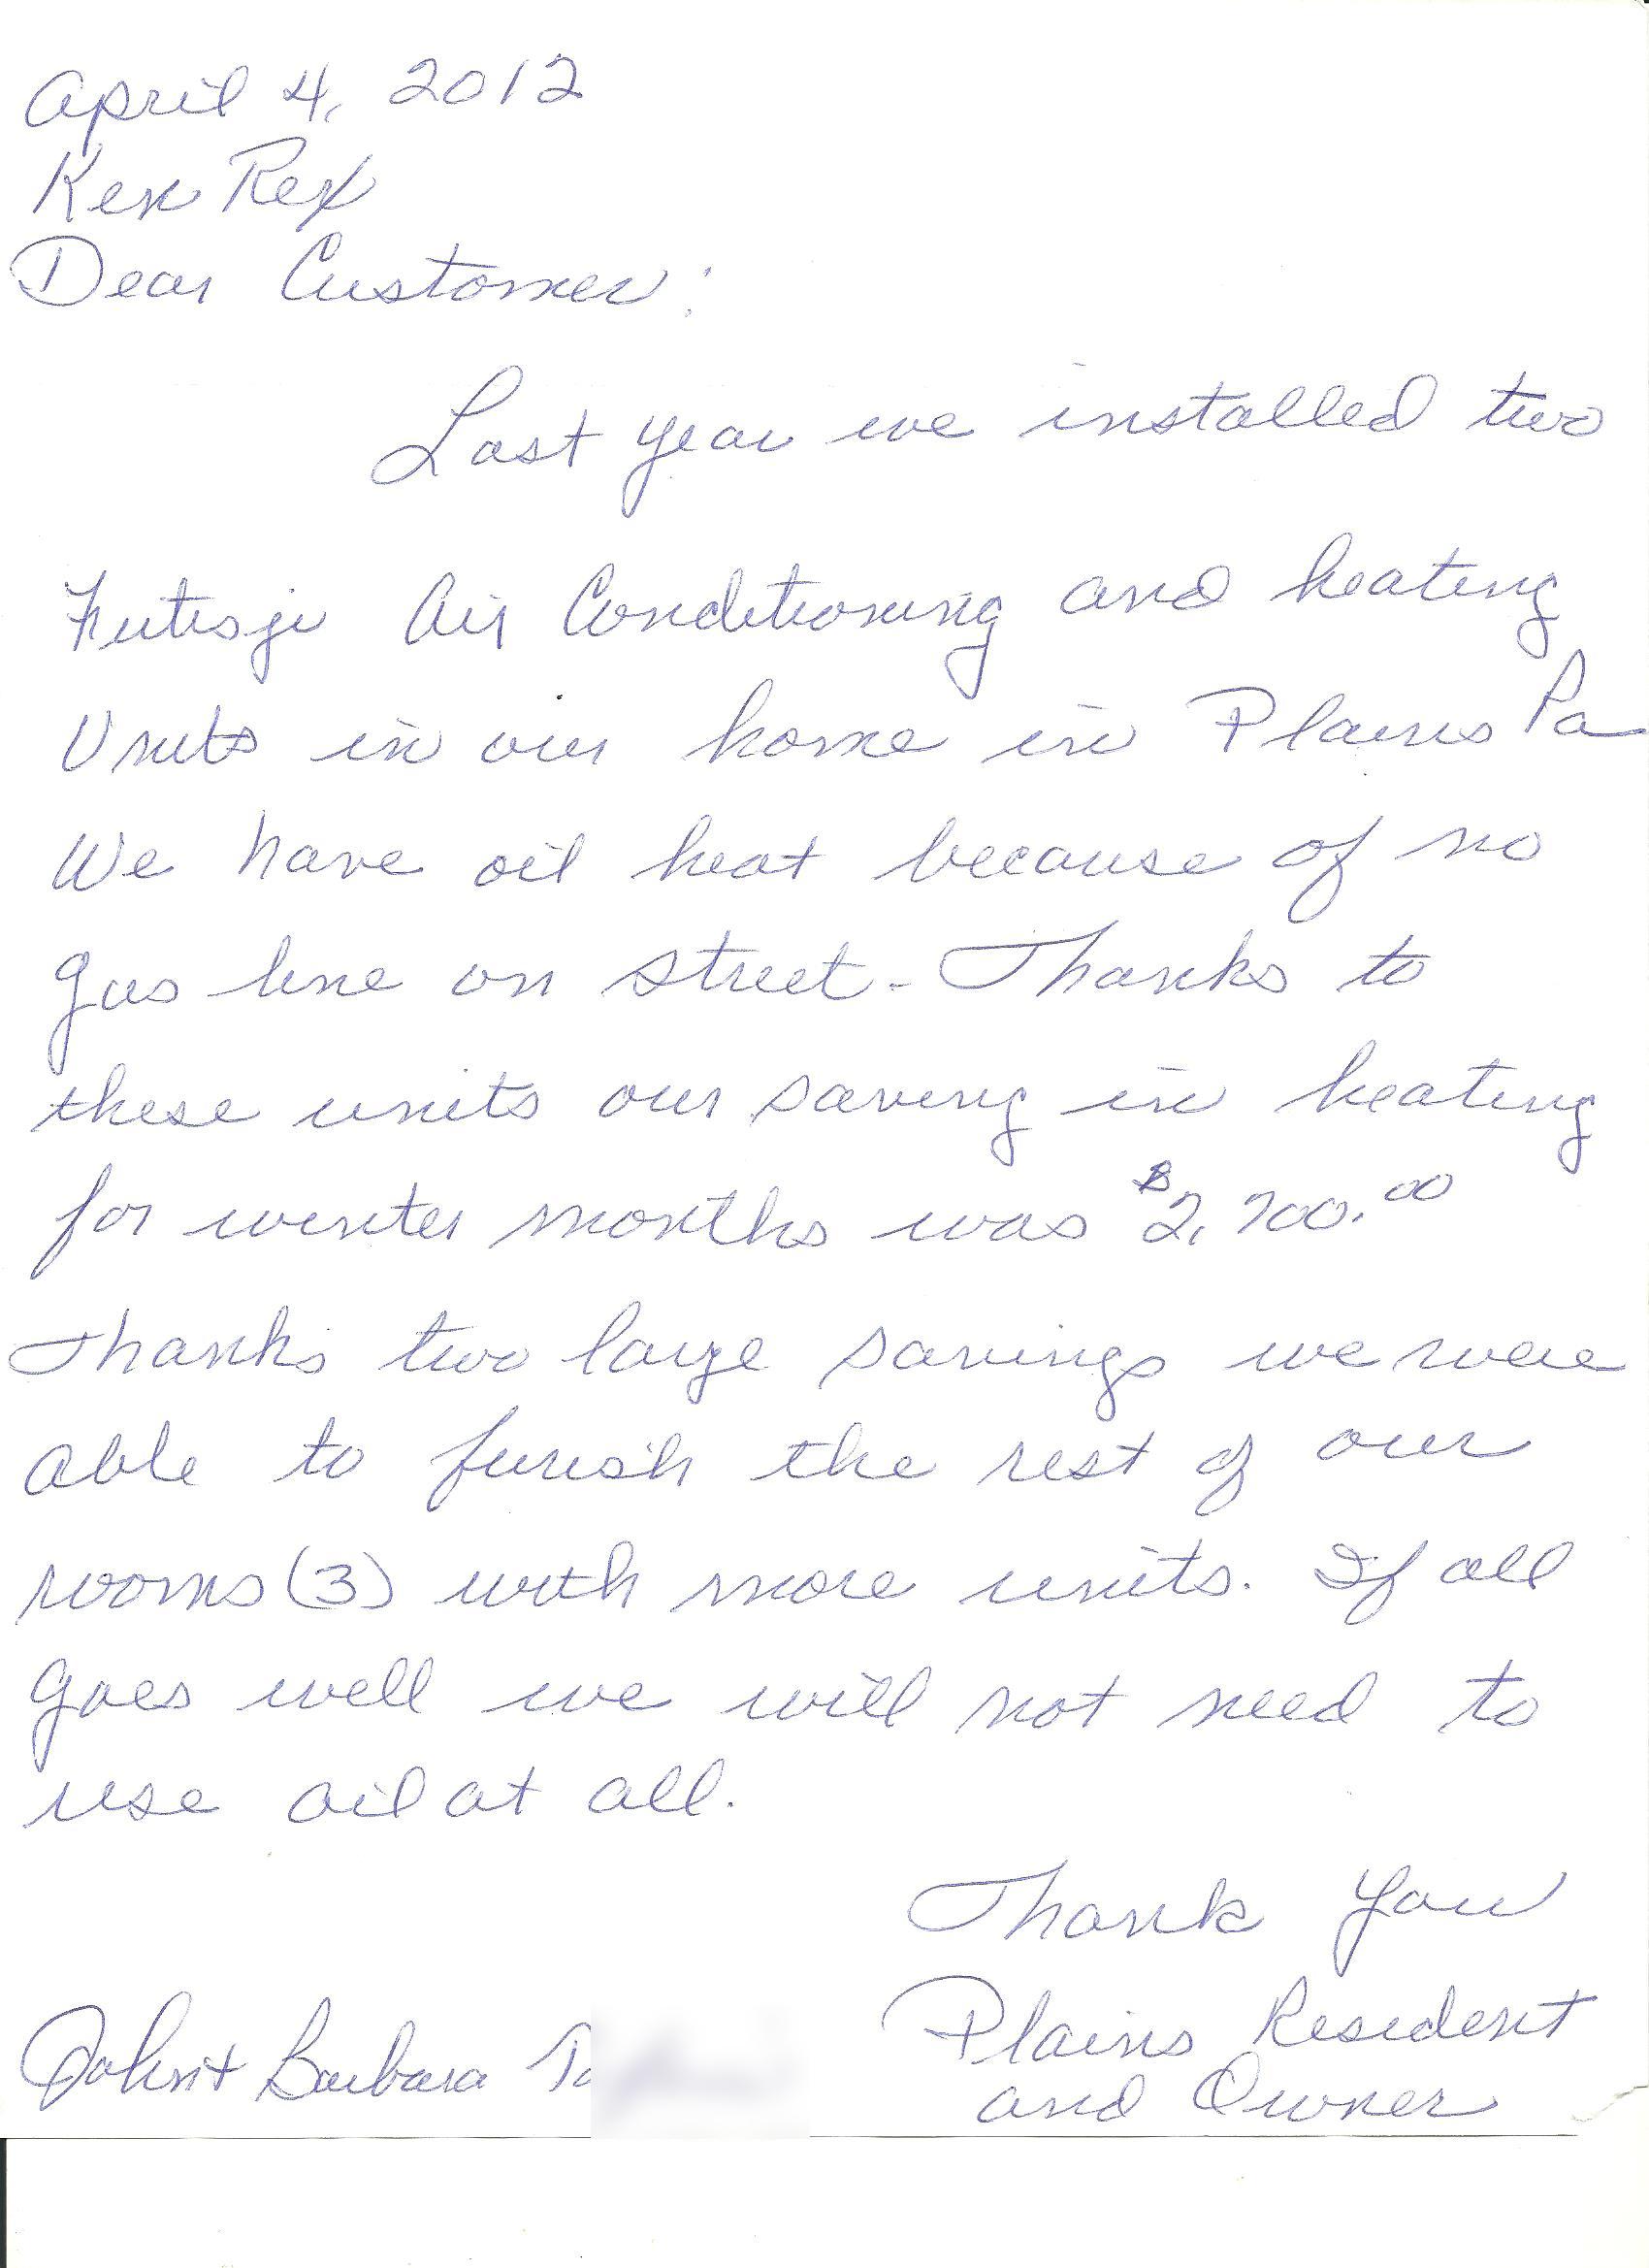 April 4, 2012
Ken Rex
Dear Customer:
Last year we installed two
Futisji Air Conditioning and heating
Units in our home in Plains Pa
We have oil heat because of no
gas line on street. Thanks to
these units our saving in heating
for winter months was $2,700.00
Thanks two large savings we were
able to furish the rest of our
rooms (3) with more units. If all
goes well we will not need to
use oil at all.
Thank you
Plains Resident
and Owner
John + Barbara